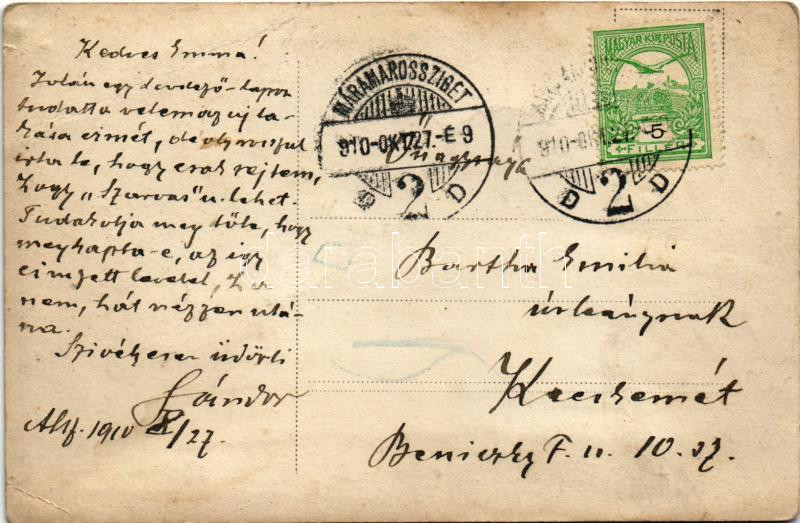 Kedves Emma!
Zoltán egy levelező-lapon
tudatta velem az új la-
kása címét, de oly rosszul
írta le, hogy csak sejtem,
hogy „Szarvas" u. lehet.
Tudakolja meg tőle, hogy
megkapta-e, az így
címzett levelet, ha
nem, hát nézzen utá-
na.
Szivélyesen üdvözli
Sándor
1910 X/27.
MÁRAMAROSSZIGET
910-OKT.27.-E 9
2
D
MAGYAR KIR. POSTA
5
FILLÉR
910-OKT.27
D 2 D
Őnagysága
Bartha Emilia
úrleánynak
Kecskemét
Beniczky F. u. 10. sz.
darabanth